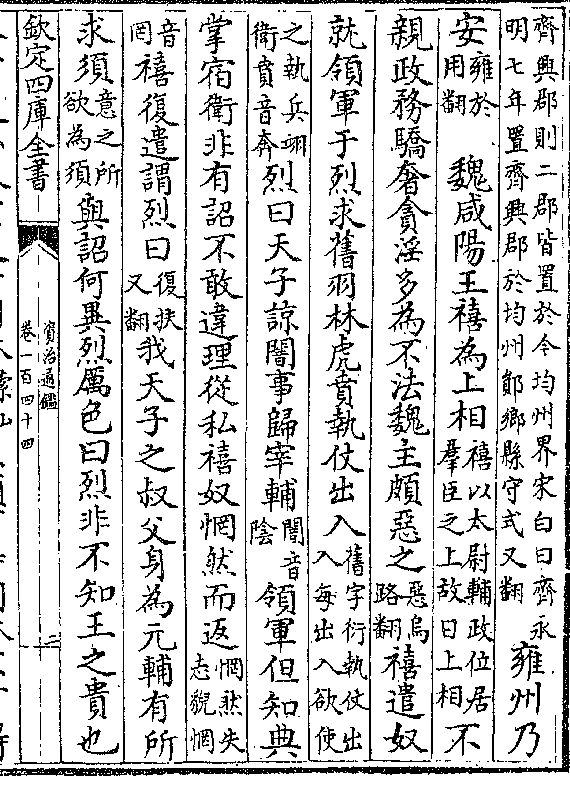 齊興郡則二郡皆置於今均州界宋白曰齊永明七年置齊興郡於均州鄖鄉縣守式又翻雍州乃
安雍於用翻 魏咸陽王禧為上相禧以太尉輔政位居羣臣之上故曰上相不
親政務驕奢貪淫多為不法魏主頗惡之惡烏路翻禧遣奴
就領軍于烈求舊羽林虎賁執仗出入舊字衍執仗出入每出入欲使
之執兵翊衛賁音奔烈曰天子諒闇事歸宰輔闇音陰領軍但知典
掌宿衛非有詔不敢違理從私禧奴惘然而返惘然失志貌惘
音罔禧復遣謂烈曰復扶又翻我天子之叔父身為元輔有所
求須意之所欲為須與詔何異烈厲色曰烈非不知王之貴也
欽定四庫全書
資治通鑑
卷一百四十四